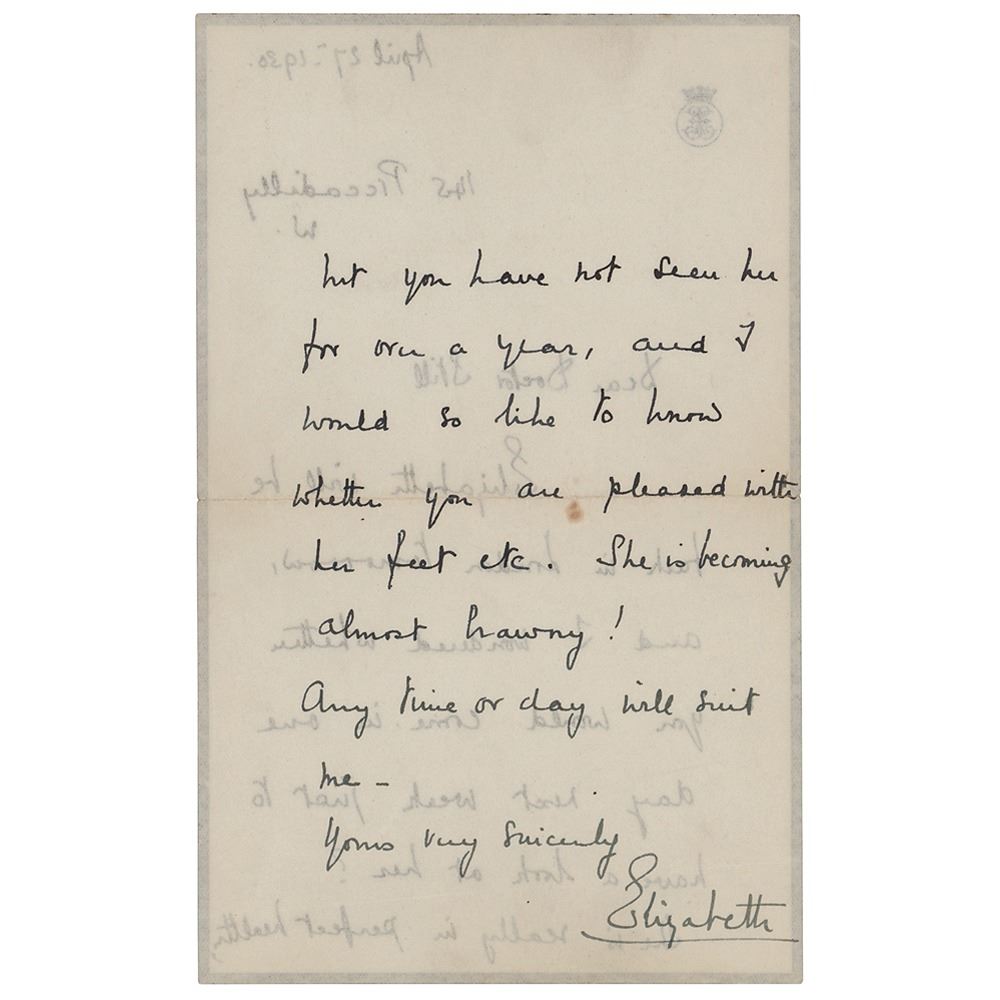 but you have not seen her
for over a year, and I
would so like to know
whether you are pleased with
her feet etc. She is becoming
almost brawny!
Any time or day will suit
me –
Yours very sincerely
Elizabeth